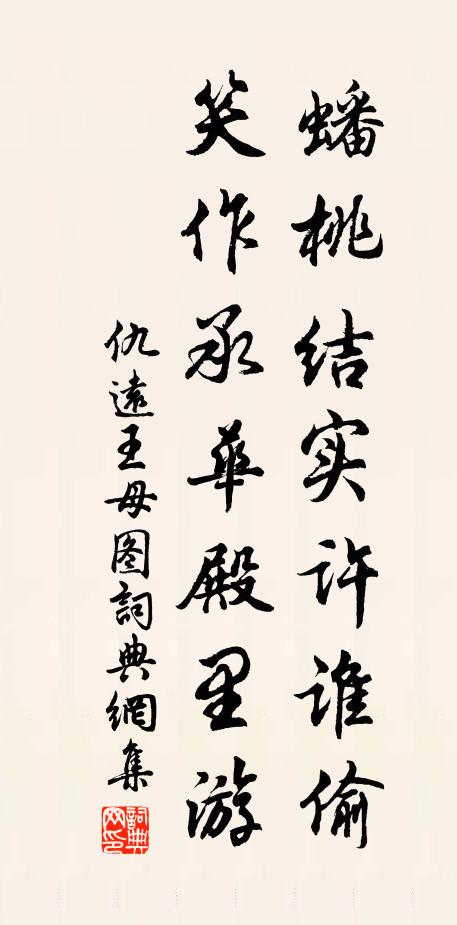 蟠桃结实许谁偷
笑作承华殿里游
仇遠王母图詞典網集
詞典网印